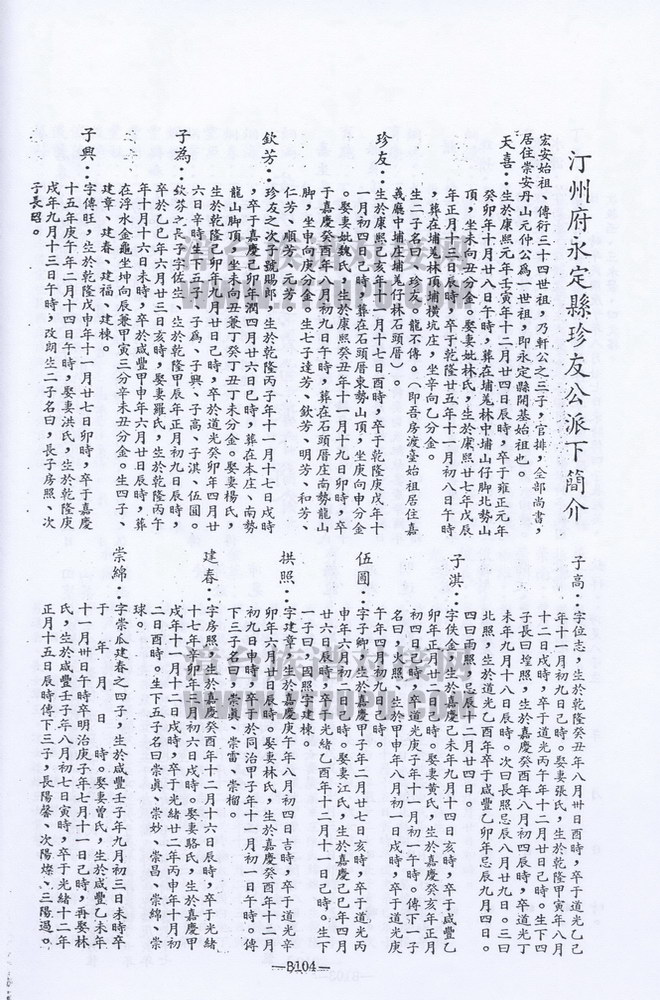 汀州府永定縣珍友公派下簡介
宏安始祖、傳衍三十四世祖，乃軒公之三子，官排，全部尚書，
居住崇安丹山元仲公為一世祖，即永定縣開基始祖也。
天喜：生於康熙元年壬寅年十二月廿四日辰時，卒于雍正元年
癸卯年十月廿八日辰時，葬在埔羗林中埔山仔脚北勢山
頂，坐未向丑分金。娶妻妣林氏，生於康熙廿七年戊辰
年正月十三日辰時，卒于乾隆廿五年十一月初八日午時
，葬在埔羗林頂埔橫坑庄，坐辛向乙分金。
生二子名曰，珍友。龍不傳。（即吾房渡臺始祖居住嘉
義廳中埔庄埔羗仔林石頭厝）。
珍友：生於康熙己亥年十一月十七日酉時，卒于乾隆庚戌年十
一月初四日己時，葬在石頭厝東勢山頂，坐庚向申分金
。娶妻妣魏氏，生於康熙癸丑年十一月十九日卯時，卒
于嘉慶癸酉年八月初九日午時，葬在石頭厝庄南勢龍山
脚，坐申向庚分金。生七子達芳、欽芳、明芳、和芳、
仁芳、順芳、元芳。
欽芳：珍友之次子號賜郎，生於乾隆丙子年十一月十七日戌時
，卒于嘉慶己卯年潤四月廿六日巳時，葬在本庄、南勢
龍山脚頂，坐未向丑兼丁癸丁丑丁未分金。娶妻楊氏，
生於乾隆己卯年九月廿日己時，卒於道光癸卯年四月廿
六日辛時生五子、子為、子興、子高、子淇、伍圓。
子為：欽芳之長子字佐生、生於乾隆甲辰年正月初九日辰時，
卒於乙巳年六月廿三日亥時，娶妻羅氏，生於乾隆丙午
年十月十六日未時，卒於咸豐甲申年六月廿日辰時，葬
在浮水金龜坐坤向辰兼甲寅三分辛未丑分金。生四子、
建章、建春、建福、建棟。
子興：字傳旺，生於乾隆戊申年十一月廿七日卯時，卒于嘉慶
十五年庚午年二月十四日午時，娶妻洪氏，生於乾隆庚
戌年九月十三日午時，改朗生二子名曰，長子房照、次
子長昭。
子高：字位志，生於乾隆癸丑年八月卅日酉時，卒于道光乙己
年十一月初九日己時。娶妻張氏，生於乾隆甲寅年八月
十二日戌時，卒于道光丙午年十二月廿日己時。生下四
子長曰埕照，生於嘉慶癸酉年八月初四辰時，卒道光丁
未年九月十八日辰時。次曰長照忌辰八月廿九日。三曰
北照，生於道光乙酉年卒于咸豐乙卯年忌辰九月四日。
四曰兩照，忌辰十二月廿四日。
子淇：字佚金，生於嘉慶己未年九月十四日亥時，卒于咸豐乙
卯年正月廿二日己時。娶妻黃氏，生於嘉慶癸亥年正月
初四日己時，卒道光庚子年十一月初一午時。傳下一子
名曰，火照，生於甲申年八月初一日戌時，卒于道光庚
午年四月初九日己時。
伍圓：字子卿，生於嘉慶甲子年二月廿七日亥時，卒于道光丙
申年六月初二日己時。娶妻江氏，生於嘉慶己巳年四月
廿六日辰時，卒于光緒乙酉年十二月十一日己時。生下
一子曰，國照字建棟。
拱照：字建章，生於嘉慶庚午年八月初四日吉時，卒于道光辛
卯年六月廿日辰時。娶妻林氏，生於嘉慶癸酉年十二月
初九日申時，卒于於同治甲子年十一月初一日午時。傳
下三子名曰，崇眞、崇富、崇榴。
建春：字房照，生於嘉慶癸酉年十二月十六日辰時，卒于光緒
十七年辛卯年五月初六日戌時。娶妻駱氏，生於嘉慶甲
戌年十一月十二日戌時，卒于光緒廿二年丙申年十月初
二日酉時。生下五子名曰崇眞、崇妙、崇昌、崇綿、崇
球。
崇綿：字崇瓜建春之四子，生於咸豐壬子年九月初三日未時卒
于　年　月　日　時。娶妻曾氏，生於咸豐乙未年
十一月卅日午時卒明治庚子年七月十一日己時，再娶林
氏，生於咸豐壬子年八月初七日寅時，卒于光緒十二年
正月十五日辰時傳下三子，長陽馨、次陽燦、三陽過。
—B104—